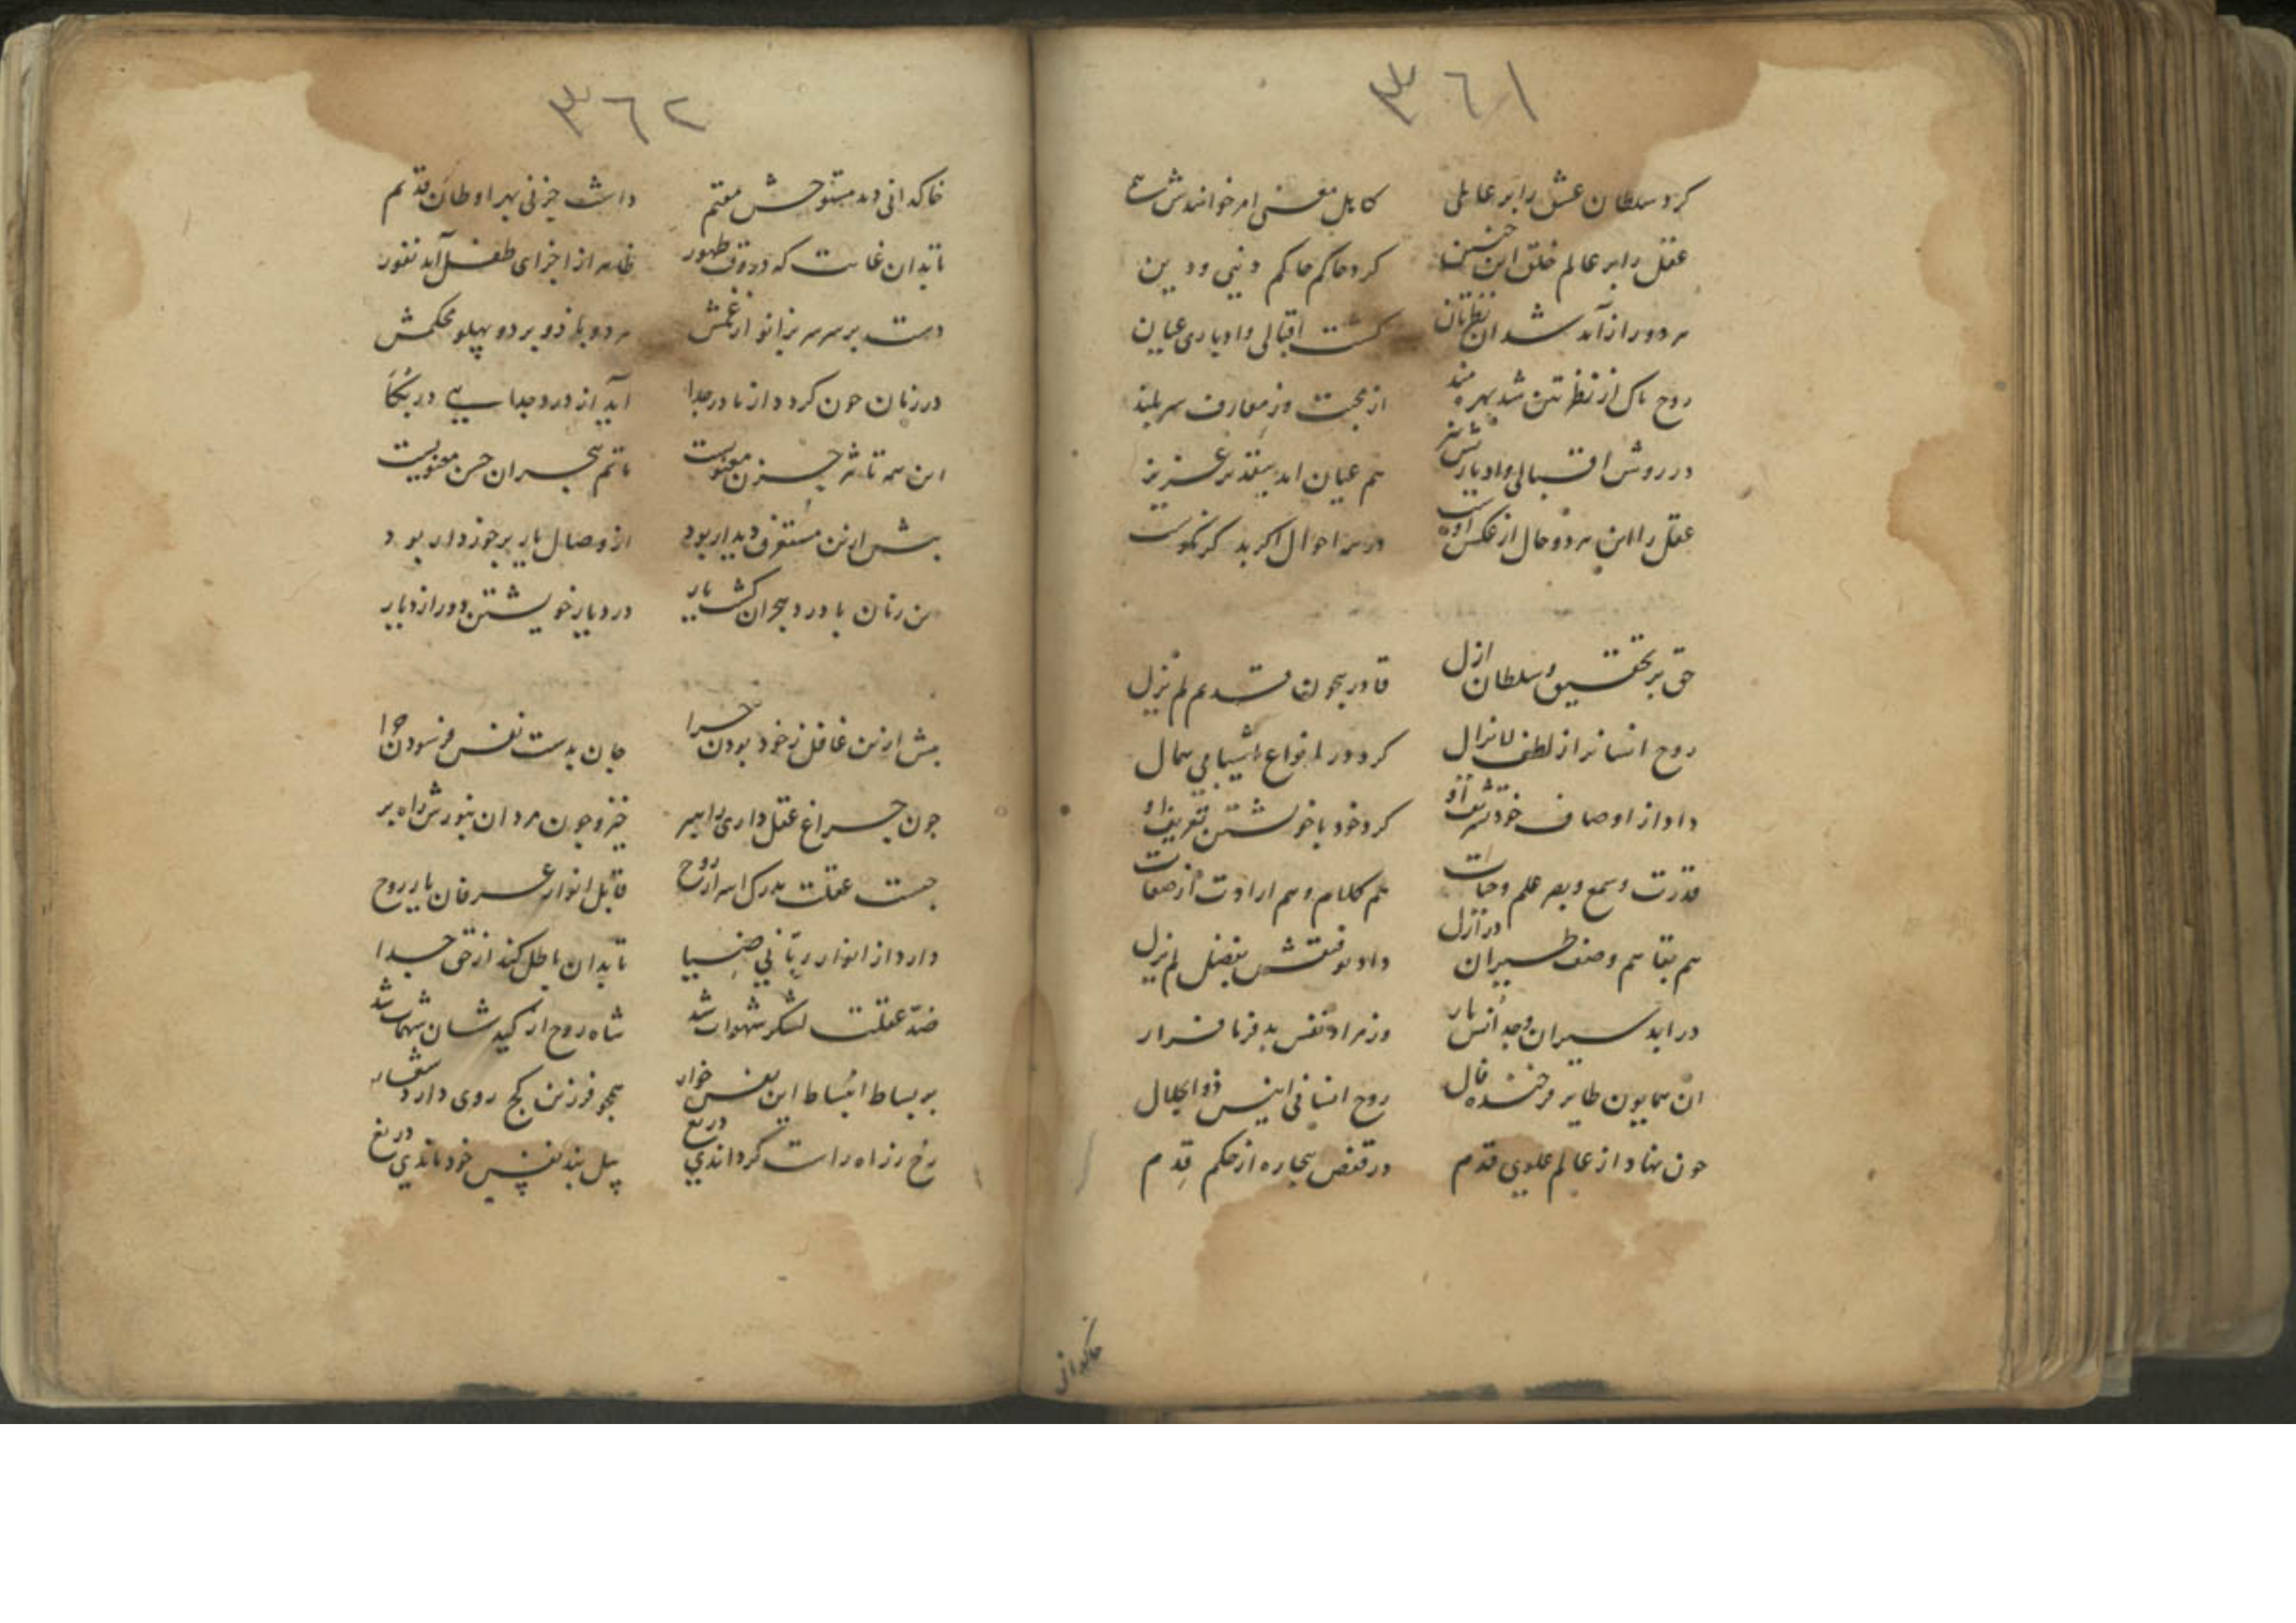 ٣٦١
کرد سلطان عشق را بر عاملی کامل معنی امر خوانندش همی
عقل را بر عالم خلق این چنین کرد حاکم حاکم دنیی و دین
هر دو را از شد ان کشت اقبالی و ادباری عیان
روح پاک از نظرتین شد بهره مند از محبت وز معارف سر بلند
در روش اقبالی و ادباریش نیز هم عیان امد عزیز
عقل را این هر دو حال از عکس اوست در همه احوال اکر بد کر نکوست
حق بر تحقیق و سلطان ازل قادر بیچون قدیم لم یزل
روح انسانرا از لطف لایزال کرد در انواع اشیا بی همال
داد از اوصاف خود تشریف او کرد خود با خویشتن تعریف او
قدرت و سمع و بصر علم و حیات هم کلام و هم ارادت از صفات
هم بقا هم وصف طیران در ازل داد توفیقش بفضل لم یزل
در ابد سیران وجد انس یار وز مراد نفس بد فرما فرار
ان همایون طایر فرخنده فال روح انسانی انیس ذو الجلال
چون نهاد از عالم علوی قدم در قفص بیچاره از حکم قدم
خاکدانی
٣٦٢
خاکدانی دید مستوحش مقیم داشت حزنی بهر اوطان قدیم
تا بدان غایت که در وقت ظهور ظاهر از اجزای طفل آید نفور
دست بر سر سر بزانو از غمش هر دو بازو بر دو پهلو محکمش
در زمان چون کردد از مادر جدا آید از درد جدایی در بکا
این همه تاثیر حزن معنویست ماتم هجران حسن معنویست
پیش ازین مستغرق دیدار بود از وصال یار برخوردار بود
این زمان با درد هجران کشت یار در دیار خویشتن دور از دیار
بیش ازین غافل ز خود بودن چرا جان بدست نفس فرسودن چرا
چون چراغ عقل داری راهبر خیز و چون مردان بنورش راه بر
چیست عقلت مدرک اسرار روح قابل انوار عرفان یار روح
دارد از انوار ربّانی ضیا تا بدان باطل کند از حق جدا
ضدّ عقلت لشکر شهوات شد شاه روح از کید شان شهمات شد
بر بساط انبساط این نفس خوار همچو فرزین کج روی دارد شعار
رخ ز راه راست گرداندی دریغ پیل بند نفس خود ماندی دریغ